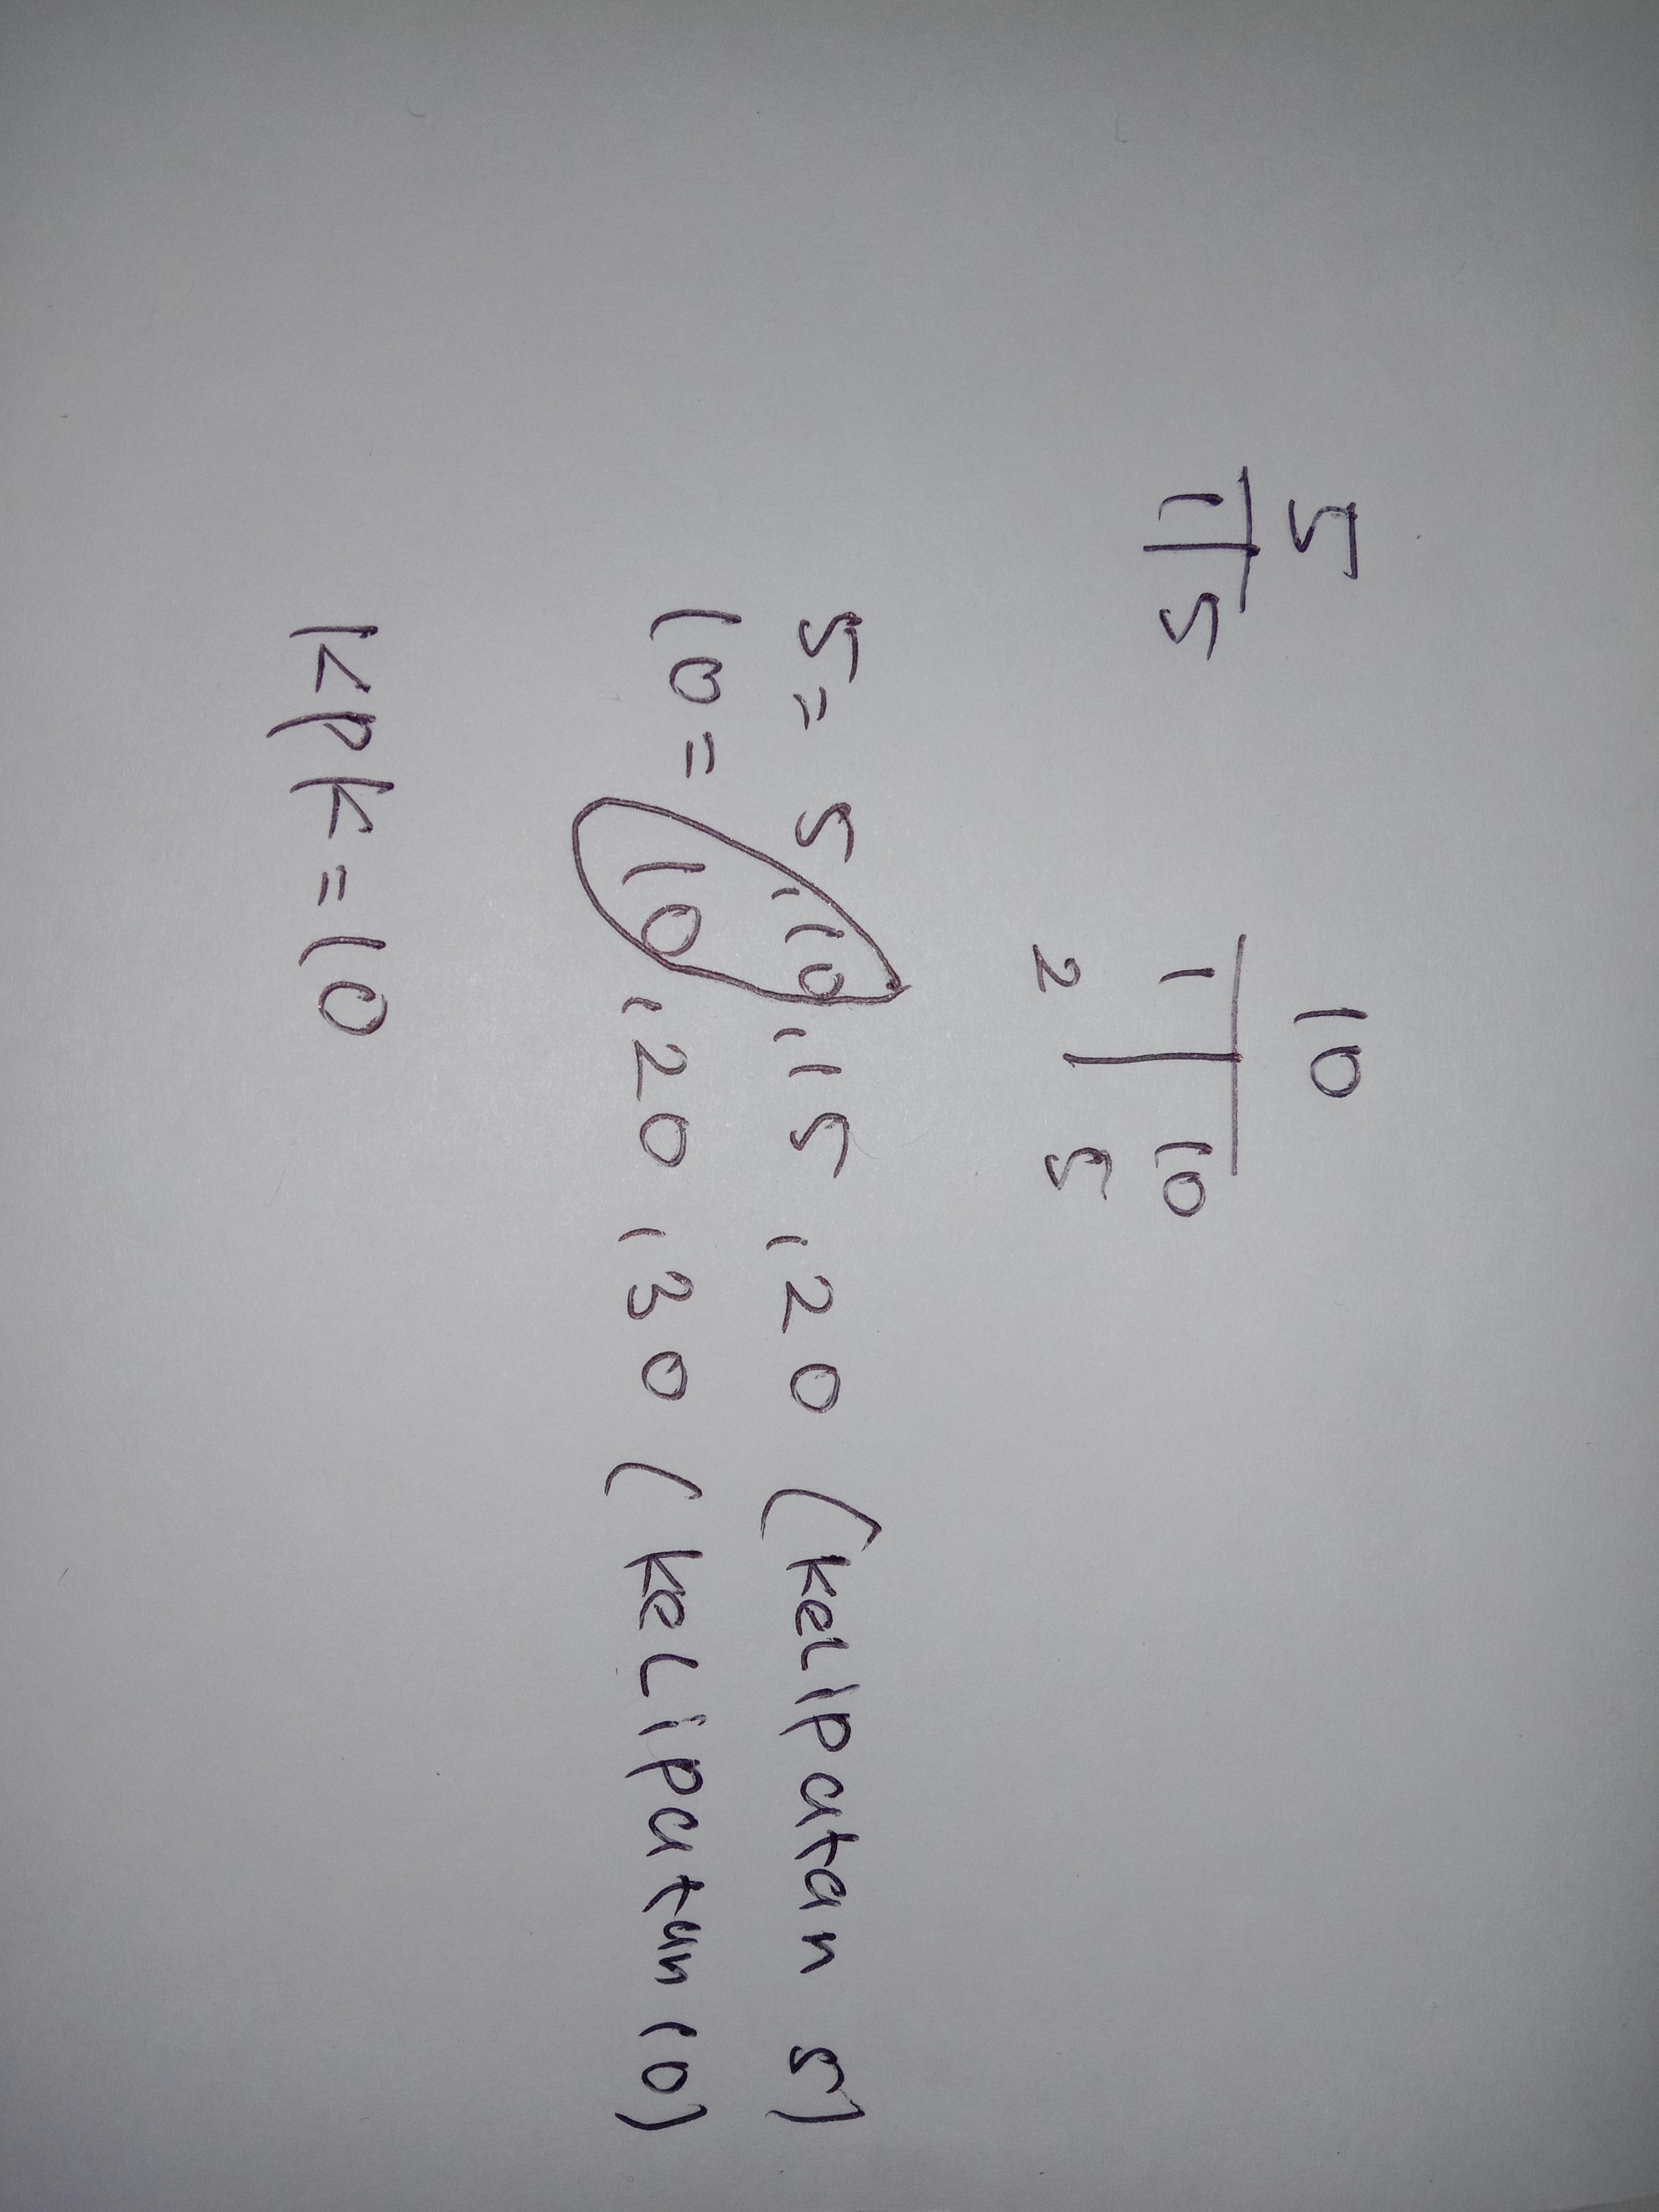 5 10
1 5 1 10
2 5
5 = 5, 10, 15, 20 (kelipatan 5)
10 = 10, 20, 30 (kelipatan 10)
KPK = 10